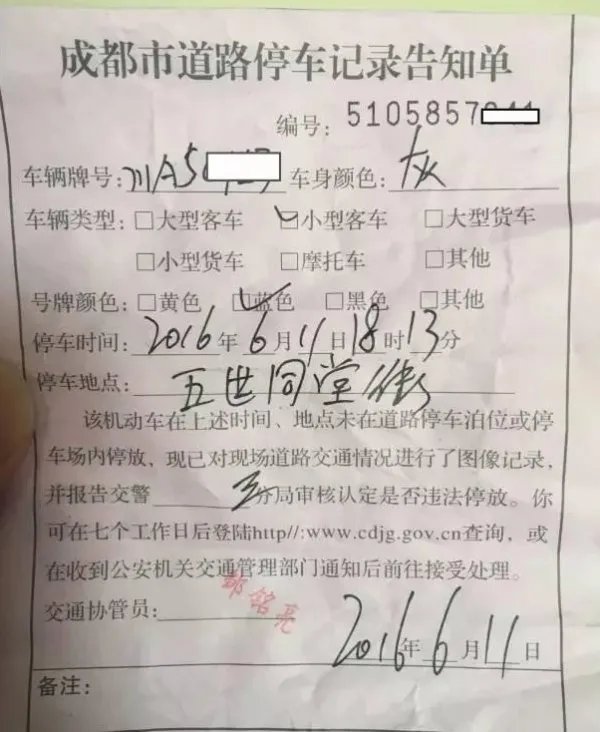 成都市道路停车记录告知单
编号：5105857
车辆牌号：川A5 车身颜色：灰
车辆类型：□大型客车 ☑小型客车 □大型货车
□小型货车 □摩托车 □其他
号牌颜色：□黄色 ☑蓝色 □黑色 □其他
停车时间：2016年6月11日18时13分
停车地点：五世同堂街
该机动车在上述时间、地点未在道路停车泊位或停
车场内停放，现已对现场道路交通情况进行了图像记录，
并报告交警 三 分局审核认定是否违法停放。你
可在七个工作日后登陆http//:www.cdjg.gov.cn查询，或
在收到公安机关交通管理部门通知后前往接受处理。
交通协管员： 铭亮
2016年6月11日
备注：